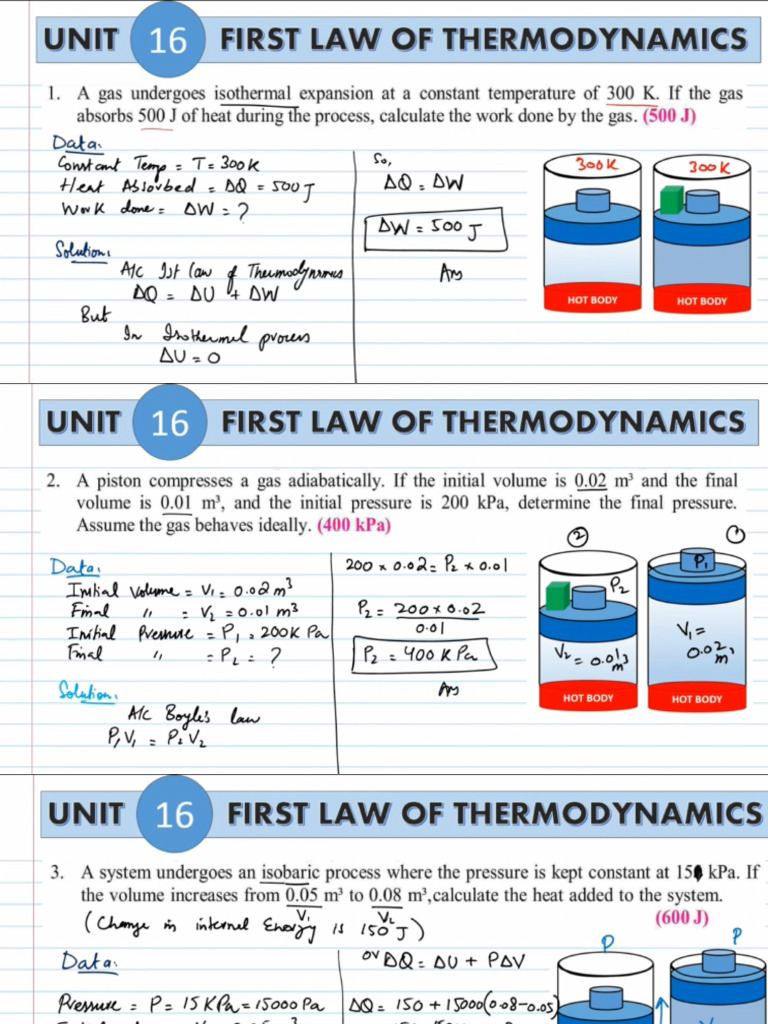 UNIT 16 FIRST LAW OF THERMODYNAMICS
1. A gas undergoes isothermal expansion at a constant temperature of 300 K. If the gas
absorbs 500 J of heat during the process, calculate the work done by the gas. (500 J)
Data:
Constant Temp = T = 300K
Heat Absorbed = ΔQ = 500 J
Work done = ΔW = ?
Solution:
A/c Ist law of Thermodynamics
ΔQ = ΔU + ΔW
But
In Isothermal process
ΔU = 0
So,
ΔQ = ΔW
ΔW = 500 J
Ans
300K 300K
HOT BODY HOT BODY
UNIT 16 FIRST LAW OF THERMODYNAMICS
2. A piston compresses a gas adiabatically. If the initial volume is 0.02 m³ and the final
volume is 0.01 m³, and the initial pressure is 200 kPa, determine the final pressure.
Assume the gas behaves ideally. (400 kPa)
Data:
Initial Volume = V₁ = 0.02 m³
Final " = V₂ = 0.01 m³
Initial Pressure = P₁ = 200K Pa
Final " = P₂ = ?
Solution:
A/c Boyle's law
P₁V₁ = P₂V₂
200 x 0.02 = P₂ x 0.01
P₂ = 200 x 0.02
0.01
P₂ = 400 K Pa
Ans
2 1
P₂ P₁
V₂ = 0.01 m³ V₁ = 0.02 m³
HOT BODY HOT BODY
UNIT 16 FIRST LAW OF THERMODYNAMICS
3. A system undergoes an isobaric process where the pressure is kept constant at 15 kPa. If
the volume increases from 0.05 m³ to 0.08 m³,calculate the heat added to the system.
V₁ V₂
(Change in internal Energy is 150 J) (600 J)
Data:
Pressure = P = 15 KPa = 15000 Pa
or ΔQ = ΔU + PΔV
ΔQ = 150 + 15000(0.08-0.05)
P P